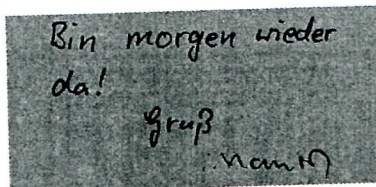 Bin morgen wieder
da!
Gruß